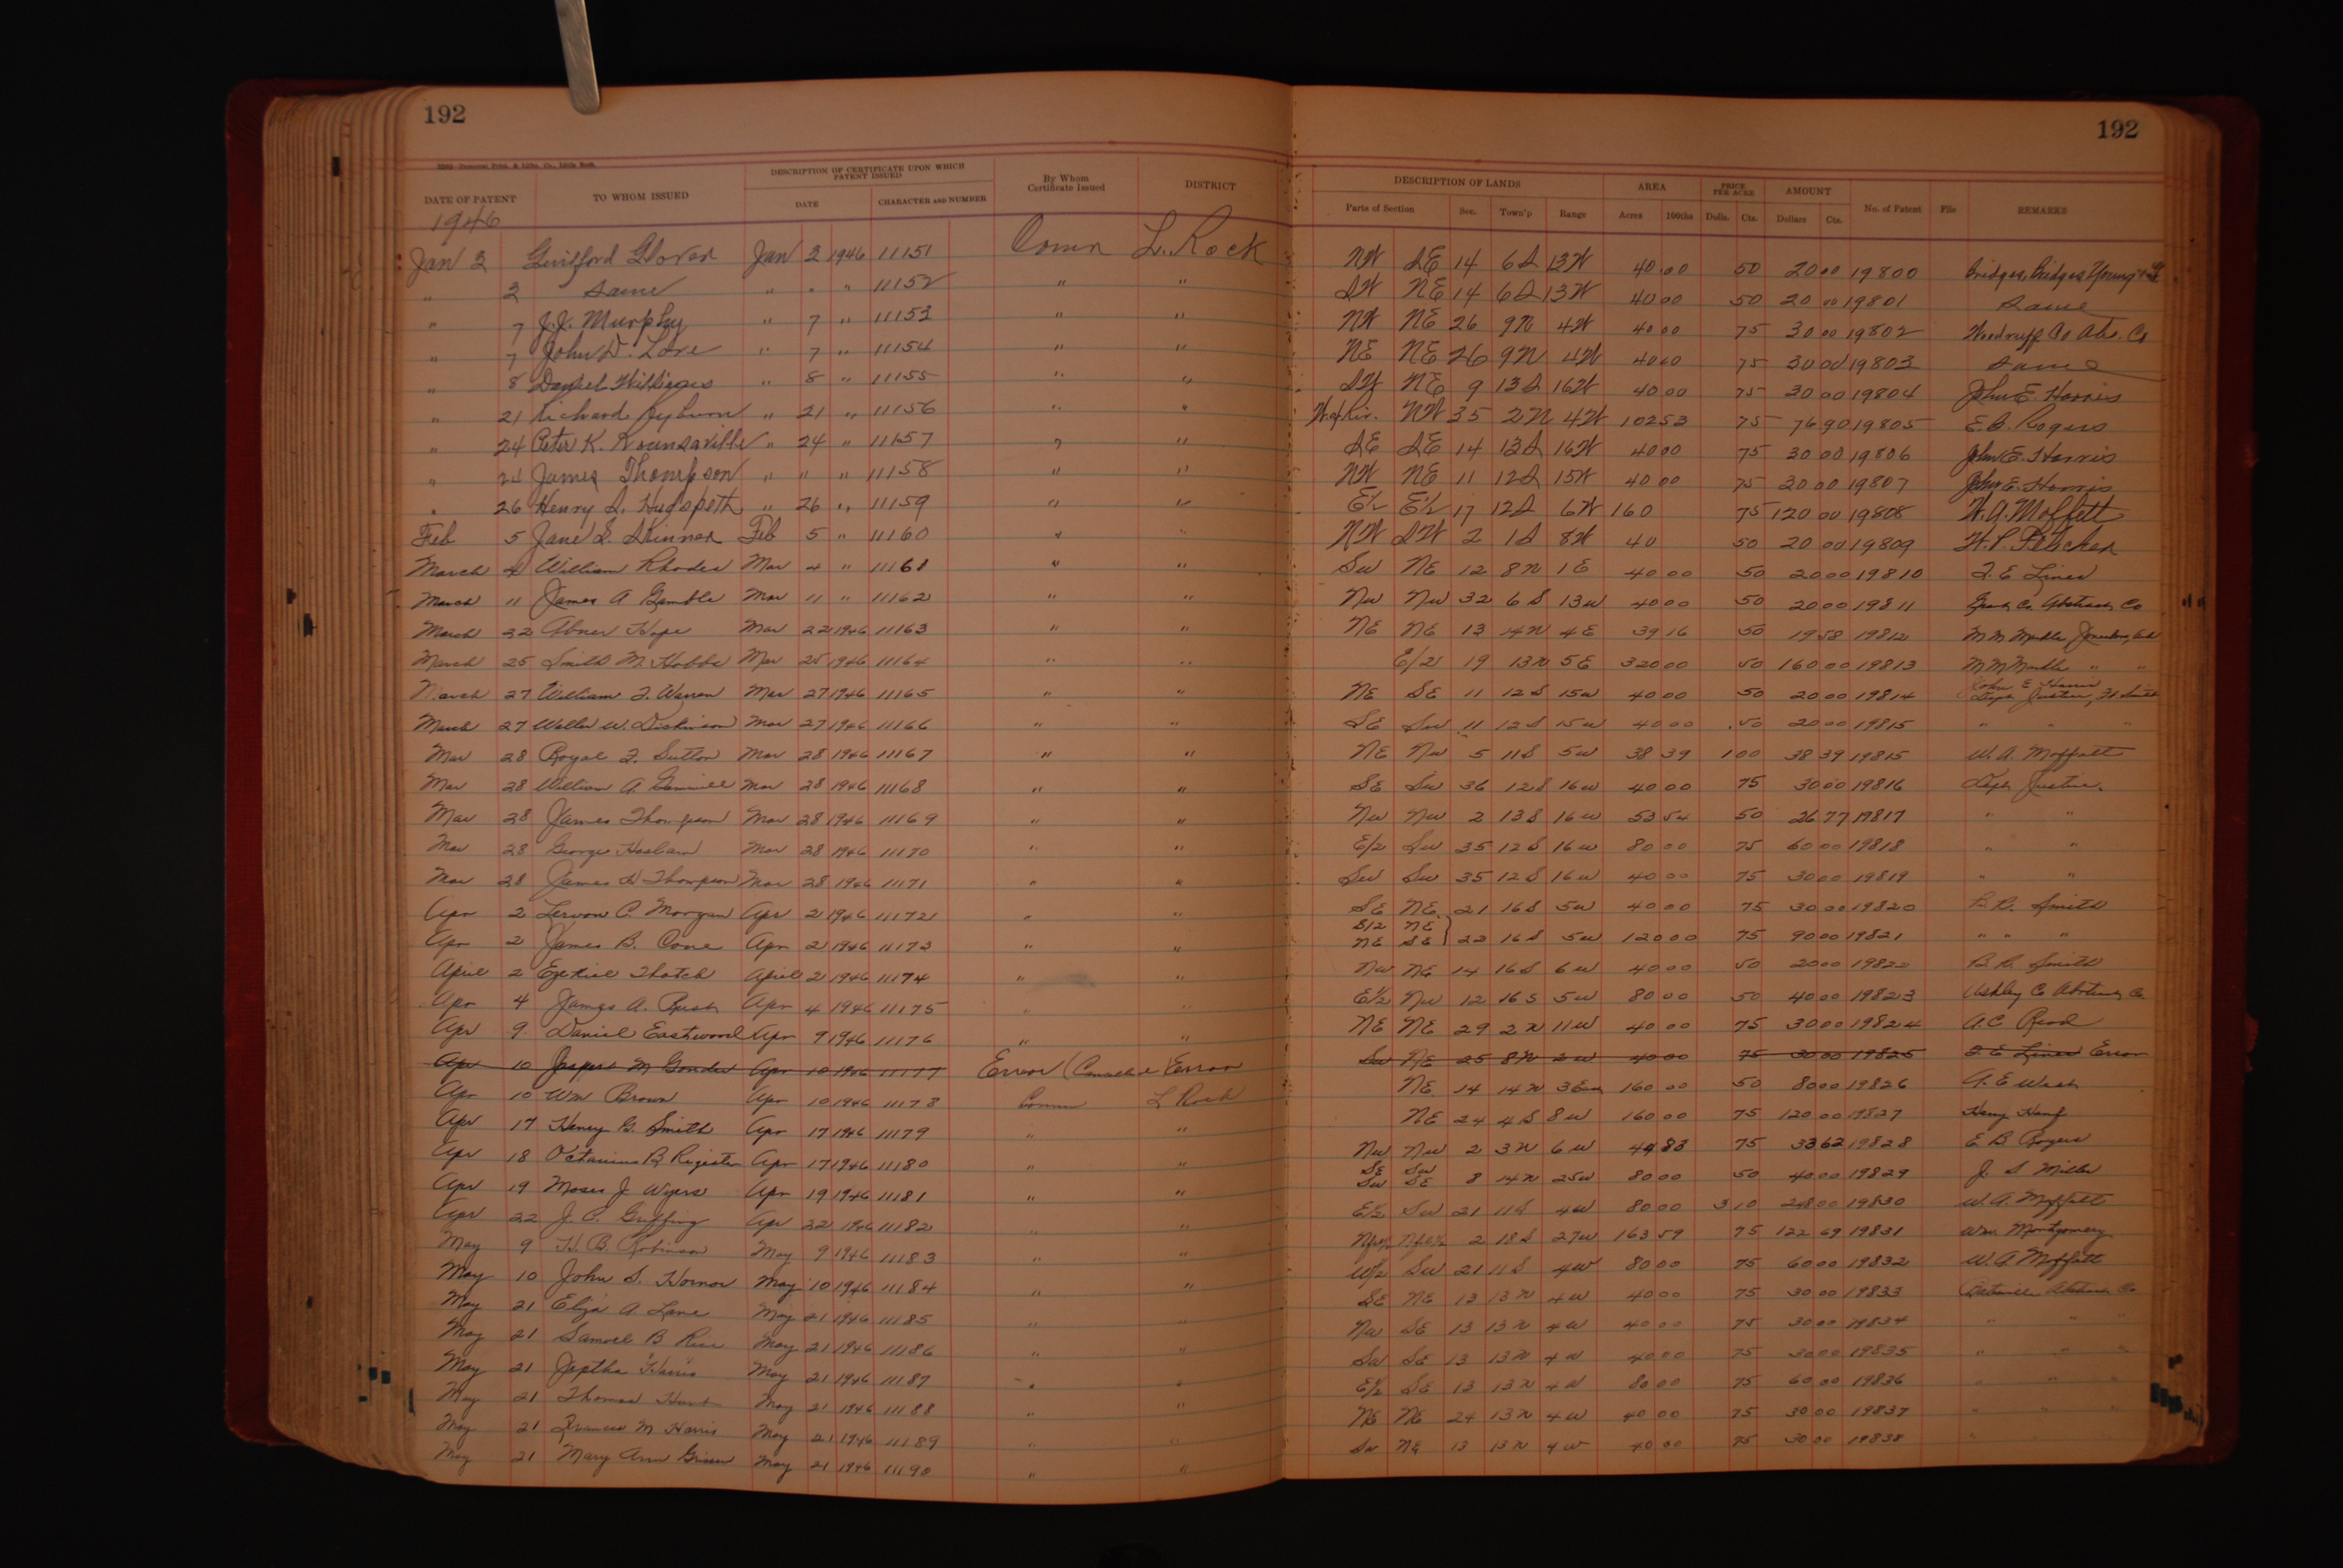 192
192
DATE OF PATENT TO WHOM ISSUED DESCRIPTION OF CERTIFICATE UPON WHICH PATENT ISSUED DATE CHARACTER AND NUMBER By Whom Certificate Issued DISTRICT DESCRIPTION OF LANDS Parts of Section Sec. Town'p Range AREA Acres 100ths PRICE PER ACRE Dolls. Cts. AMOUNT Dollars Cts. No. of Patent File REMARKS
1946
Jan 2 Guilford Glover Jan 2 1946 11151 Comn L. Rock NW SE 14 6S 13W 40 00 50 20 00 19800 Bridges, Bridges, Young
" 2 Same " " " 11152 " " SW NE 14 6S 13W 40 00 50 20 00 19801 Same
" 7 J.J. Murphy " 7 " 11153 " " NW NE 26 9N 4W 40 00 75 30 00 19802 Woodruff Co Abs. Co
" 7 John D. Love " 7 " 11154 " " NE NE 26 9N 4W 40 00 75 30 00 19803 Same
" 8 Daniel " 8 " 11155 " " SW NE 9 13S 16W 40 00 75 30 00 19804 John E. Harris
" 21 Richard " 21 " 11156 " " NW 35 2N 4W 102 53 75 76 90 19805 E.B. Rogers
" 24 Peter K. Rounsaville " 24 " 11157 " " SE SE 14 13S 16W 40 00 75 30 00 19806 John E. Harris
" 24 James Thompson " " " 11158 " " NW NE 11 12S 15W 40 00 75 30 00 19807 John E. Harris
" 26 Henry S. Hudspeth " 26 " 11159 " " E½ E½ 17 12S 6W 160 75 120 00 19808 W.A. Moffatt
Feb 5 Jane S. Skinner Feb 5 " 11160 " " NW SW 2 1S 8W 40 50 20 00 19809
March 4 William Rhodes Mar 4 " 11161 " " SW NE 12 8N 1E 40 00 50 20 00 19810 T. E. Lines
March 11 James A Gamble Mar 11 " 11162 " " NW NW 32 6S 13W 40 00 50 20 00 19811 Grant Co. Abstract Co
March 22 Abner Hope Mar 22 1946 11163 " " NE NE 13 14N 4E 39 16 50 19 58 19812 M M
March 25 Smith M. Hobbs Mar 25 1946 11164 " " E/2 19 13N 5E 320 00 50 160 00 19813 M M " "
March 27 William F. Warren Mar 27 1946 11165 " " NE SE 11 12S 15W 40 00 50 20 00 19814 John E Harris
March 27 Walter W. Dickinson Mar 27 1946 11166 " " SE SW 11 12S 15W 40 00 .50 20 00 19815 " " "
Mar 28 Royal F. Sutton Mar 28 1946 11167 " " NE NW 5 11S 5W 38 39 1 00 38 39 19815 W. A. Moffatt
Mar 28 William A. Mar 28 1946 11168 " " SE SW 36 12S 16W 40 00 75 30 00 19816
Mar 28 James Thompson Mar 28 1946 11169 " " NW NW 2 13S 16W 53 54 50 26 77 19817 " "
Mar 28 George Haslam Mar 28 1946 11170 " " E/2 SW 35 12S 16W 80 00 75 60 00 19818 " "
Mar 28 James H Thompson Mar 28 1946 11171 " " SW SW 35 12S 16W 40 00 75 30 00 19819 " "
Apr 2 C. Morgan Apr 2 1946 11172 " " SE NE 21 16S 5W 40 00 75 30 00 19820 B. R. Smith
Apr 2 James B. Cone Apr 2 1946 11173 " " E/2 NE NE SE } 22 16S 5W 120 00 75 90 00 19821 " " "
April 2 Ezekiel Thatch April 2 1946 11174 " " NW NE 14 16S 6W 40 00 50 20 00 19822 B. R. Smith
Apr 4 James A. Rush Apr 4 1946 11175 " " E½ NW 12 16S 5W 80 00 50 40 00 19823 Ashley Co Abstract Co.
Apr 9 Daniel Eastwood Apr 9 1946 11176 " " NE NE 29 2N 11W 40 00 75 30 00 19824 A.C. Read
Apr 10 Jasper M Apr 10 1946 11177 Error (Cancelled) Error SW NE 25 8N 2W 40 00 75 30 00 19825 T. E. Lines Error
Apr 10 Wm Brown Apr 10 1946 11178 Comm L Rock NE 14 14N 3E 160 00 50 80 00 19826 A. E
Apr 17 Henry G. Smith Apr 17 1946 11179 " " NE 24 4S 8W 160 00 75 120 00 19827
Apr 18 Octavius B Register Apr 17 1946 11180 " " NW NW 2 3N 6W 44 83 75 33 62 19828 E B Rogers
Apr 19 Moses J. Wyers Apr 19 1946 11181 " " SE SW SW SE 8 14N 25W 80 00 50 40 00 19829 J. S Miller
Apr 22 J. C. Griffing Apr 22 1946 11182 " " E½ SW 21 11S 4W 80 00 3 10 248 00 19830 W. A. Moffatt
May 9 H. B. Robinson May 9 1946 11183 " " 2 18S 27W 163 59 75 122 69 19831 Wm. Montgomery
May 10 John S. Hornor May 10 1946 11184 " " W/2 SW 21 11S 4W 80 00 75 60 00 19832 W. A Moffatt
May 21 Eliza A. Lane May 21 1946 11185 " " SE NE 13 13N 4W 40 00 75 30 00 19833 Batesville Abstract Co
May 21 Samuel B Rice May 21 1946 11186 " " NW SE 13 13N 4W 40 00 75 30 00 19834 " " "
May 21 Jeptha Harris May 21 1946 11187 " " SW SE 13 13N 4W 40 00 75 30 00 19835 " " "
May 21 Thomas Hunt May 21 1946 11188 " " E½ SE 13 13N 4W 80 00 75 60 00 19836 " " "
May 21 Frances M Harris May 21 1946 11189 " " NE NE 24 13N 4W 40 00 75 30 00 19837 " " "
May 21 Mary Ann May 21 1946 11190 " " SW NE 13 13N 4W 40 00 75 30 00 19838 "